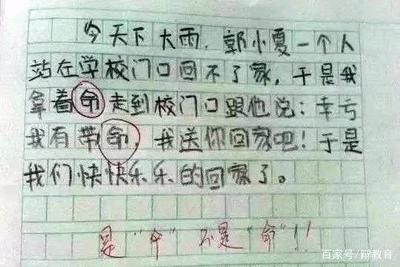 今天下大雨,郭小夏一个人
站在学校门口回不了家,于是我
拿着命走到校门口跟他说:幸亏
我有带命,我送你回家吧!于是
我们快快乐乐的回家了。
是“伞”不是“命”!!
百家号/辩教育